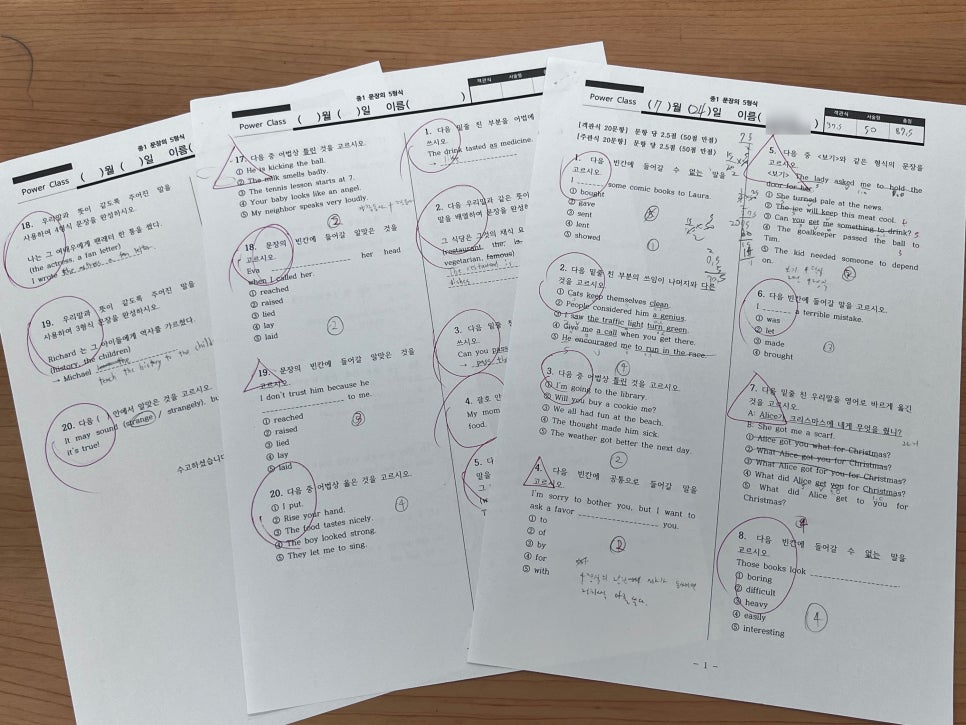 Power Class ( )월 ( )일 이름(
18. 우리말과 뜻이 같도록 주어진 말을
사용하여 4형식 문장을 완성하시오.
나는 그 여배우에게 팬레터 한 통을 썼다.
(the actress, a fan letter)
I wrote the actress a fan letter.
19. 우리말과 뜻이 같도록 주어진 말을
사용하여 3형식 문장을 완성하시오.
Richard 는 그 아이들에게 역사를 가르쳤다.
(history, the children)
→ Michael
teach the history to the child
20. 다음 ( ) 안에서 알맞은 것을 고르시오.
It may sound (strange / strangely), bu
it's true!
수고하셨습니다
중1 문장의 5형식
Power Class ( )월 ( )일 이름( )
객관식 서술형
17. 다음 중 어법상 틀린 것을 고르시오.
① He is kicking the ball.
② The milk smells badly.
③ The tennis lesson starts at 7.
④ Your baby looks like an angel.
⑤ My neighbor speaks very loudly.
②
18. 문장의 빈칸에 들어갈 알맞은 것을
고르시오.
Eva ____ her head
when I called her.
① reached
② raised
③ lied
④ lay
⑤ laid
②
19. 문장의 빈칸에 들어갈 알맞은 것을
고르시오.
I don't trust him because he
____ to me.
① reached
② raised
③ lied
④ lay
⑤ laid
③
20. 다음 중 어법상 옳은 것을 고르시오.
① I put.
② Rise your hand.
③ The food tastes nicely.
④ The boy looked strong.
⑤ They let me to sing.
④
1. 다음 밑줄 친 부분을 어법에
쓰시오.
The drink tasted as medicine.
→ like
2. 다음 우리말과 같은 뜻이
말을 배열하여 문장을 완성하
그 식당은 그것의 채식 요
(restaurant, the, is
vegetarian, famous)
The restaurant is
dishes
3. 다음 밑줄 친
쓰시오.
Can you pass
→ pass the
4. 괄호 안
My mom
food.
5. 다
말을
그
중1 문장의 5형식
Power Class (7)월 (04)일 이름(
객관식 서술형 총점
37.5 50 87.5
[객관식 20문항] 문항 당 2.5점 (50점 만점)
[주관식 20문항] 문항 당 2.5점 (50점 만점)
1. 다음 빈칸에 들어갈 수 없는 말을
고르시오.
I ____ some comic books to Laura.
① bought
② gave
③ sent
④ lent
⑤ showed
①
2. 다음 밑줄 친 부분의 쓰임이 나머지와 다른
것을 고르시오.
① Cats keep themselves clean.
② People considered him a genius.
③ I saw the traffic light turn green.
④ Give me a call when you get there.
⑤ He encouraged me to run in the race.
④
3. 다음 중 어법상 틀린 것을 고르시오.
① I'm going to the library.
② Will you buy a cookie me?
③ We all had fun at the beach.
④ The thought made him sick.
⑤ The weather got better the next day.
②
4. 다음 빈칸에 공통으로 들어갈 말을
고르시오.
I'm sorry to bother you, but I want to
ask a favor ____ you.
① to
② of
③ by
④ for
⑤ with
②
5. 다음 중 <보기>와 같은 형식의 문장을
고르시오.
<보기> The lady asked me to hold the
door for her.
① She turned pale at the news.
② The ice will keep this meat cool.
③ Can you get me something to drink?
④ The goalkeeper passed the ball to
Tim.
⑤ The kid needed someone to depend
on.
②
6. 다음 빈칸에 들어갈 말을 고르시오.
I ____ a terrible mistake.
① was
② let
③ made
④ brought
③
7. 다음 밑줄 친 우리말을 영어로 바르게 옮긴
것을 고르시오.
A: Alice가 크리스마스에 네게 무엇을 줬니?
B: She got me a scarf.
① Alice got you what for Christmas?
② What Alice got you for Christmas?
③ What Alice got for you for Christmas?
④ What did Alice get you for Christmas?
⑤ What did Alice get to you for
Christmas?
8. 다음 빈칸에 들어갈 수 없는 말을
고르시오.
Those books look ____
① boring
② difficult
③ heavy
④ easily
⑤ interesting
④
- 1 -